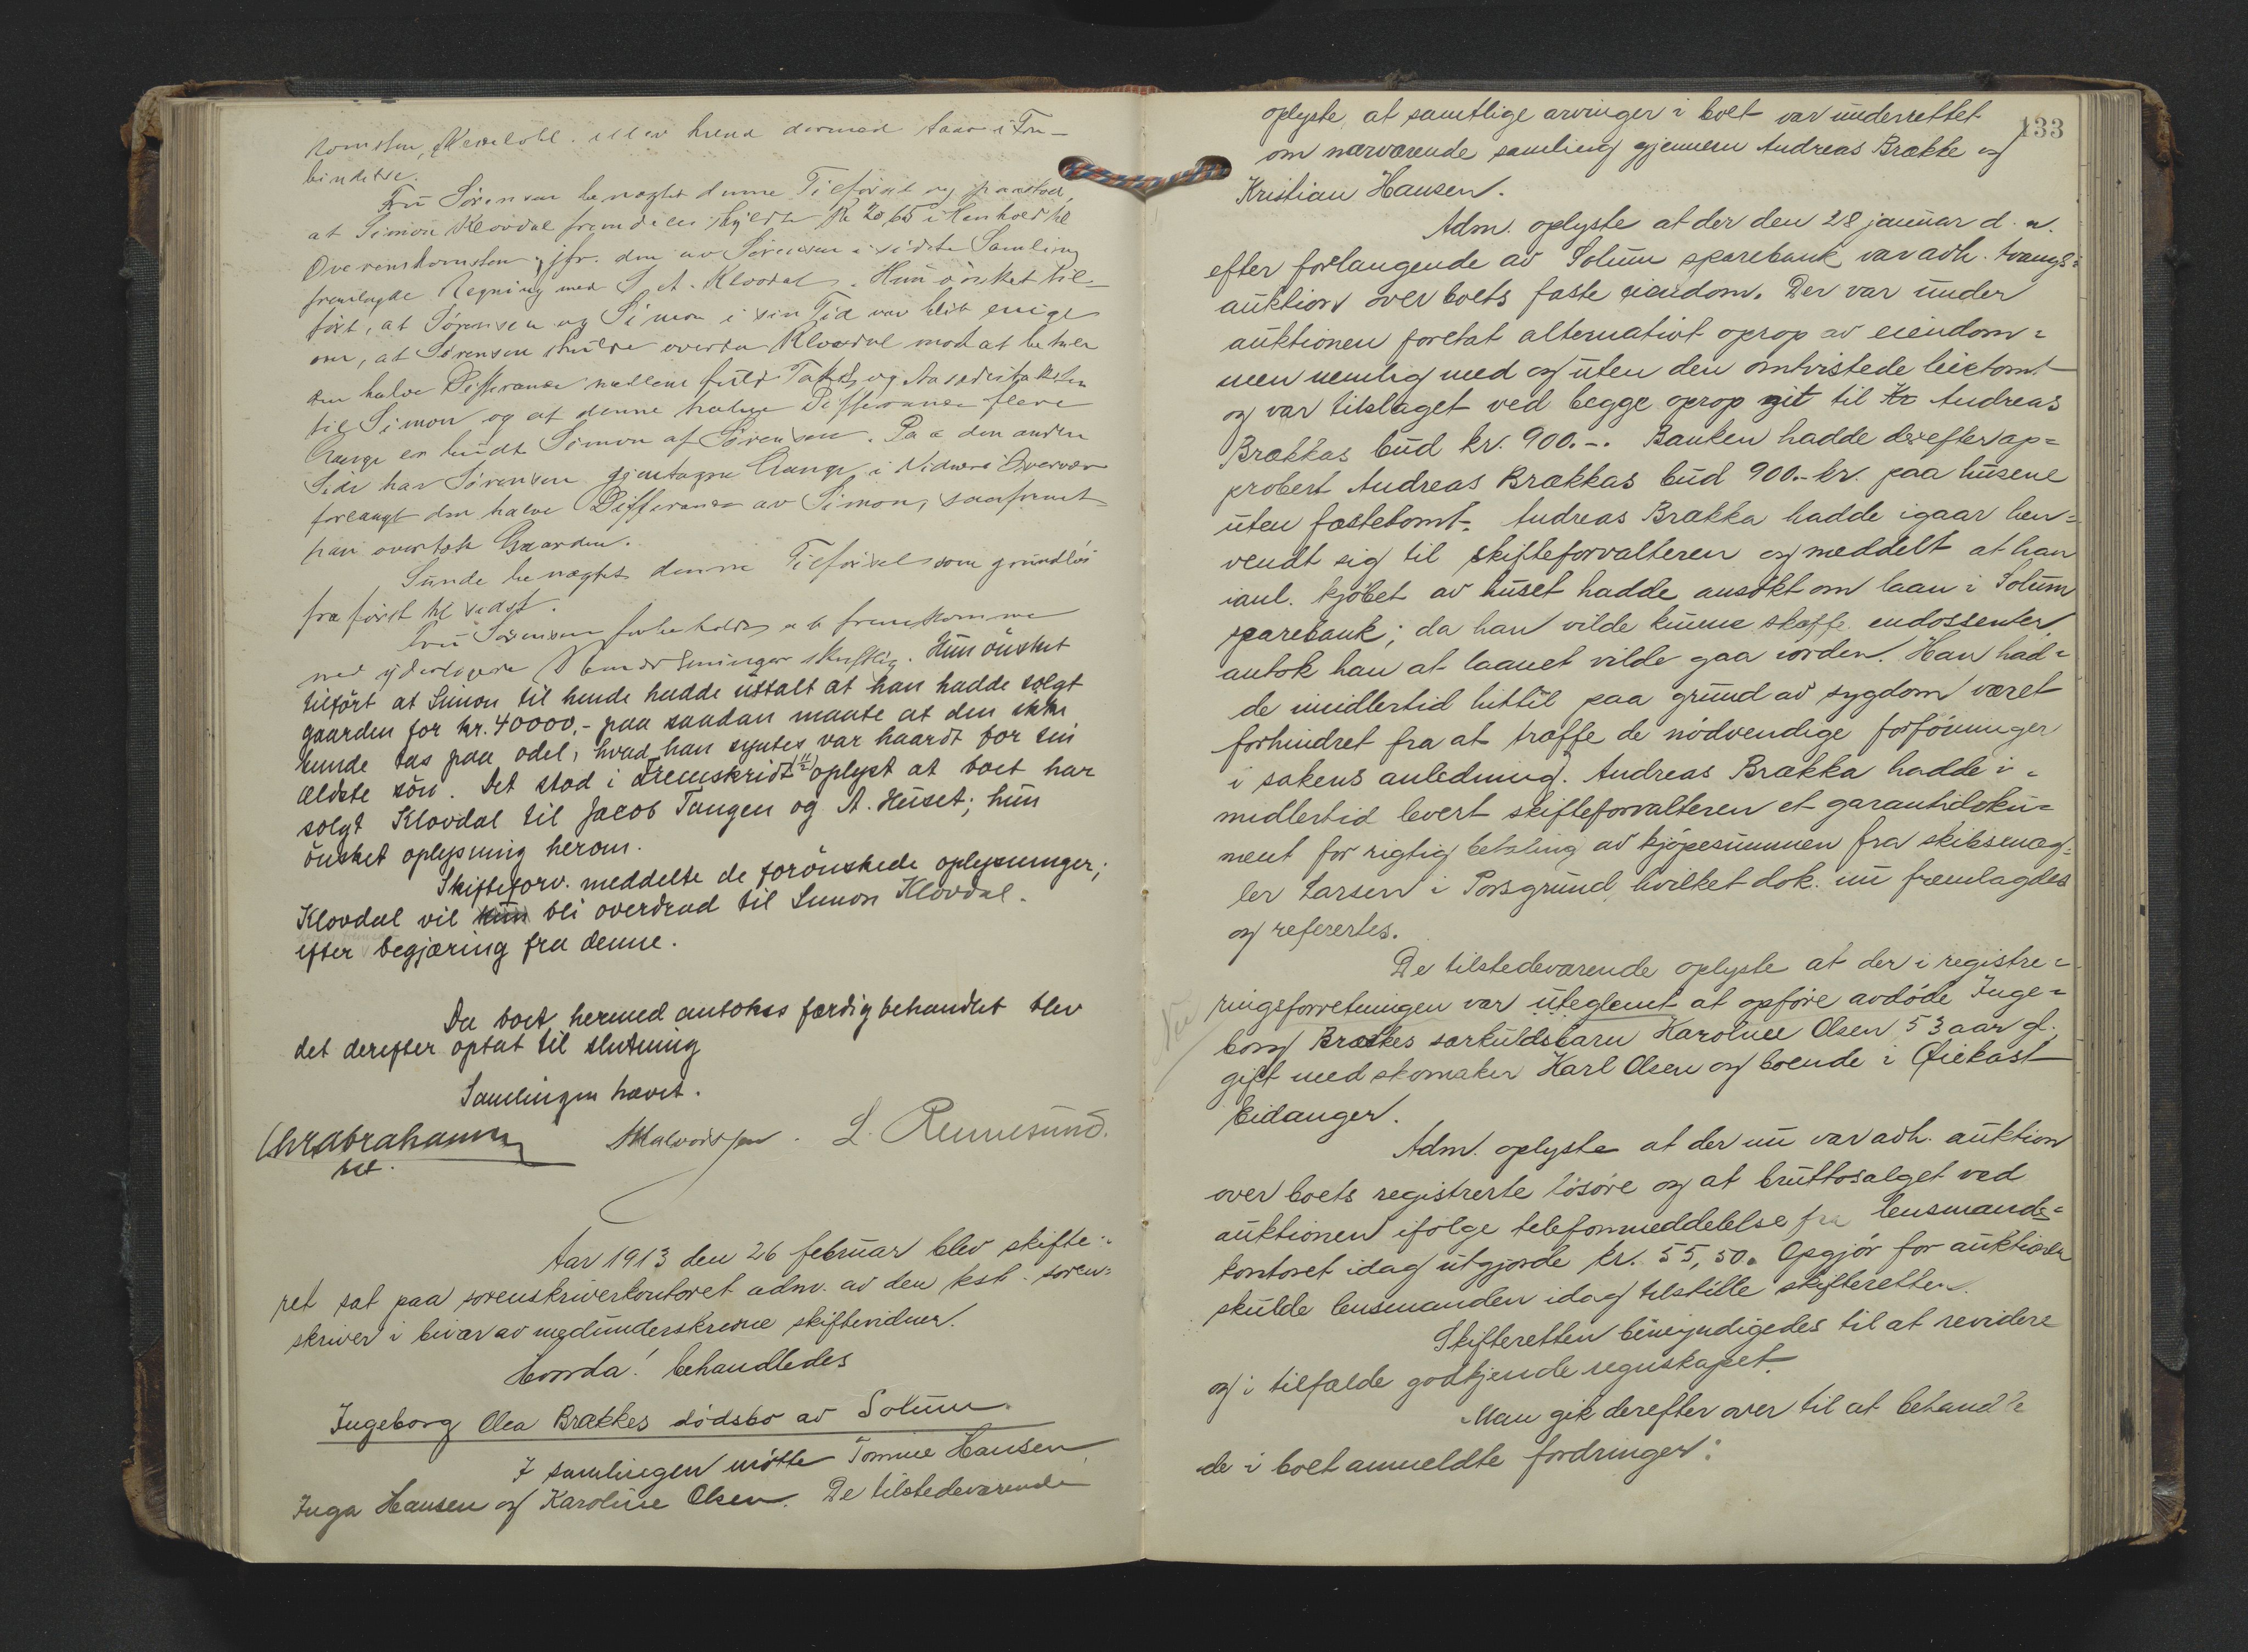 komsten,
bindelse.
Fru Sørensen benægtet denne Tilførsel og paastod,
at Simon Klovdal fremdeles skyldte Kr 2065 i Henhold til
Overenskomsten, jfr. den av Sørensen i sidste Samling
fremlagde Regning med S. A. Klovdal. Hun ønsket til-
ført, at Sørensen og Simon i sin Tid var blit enige
om, at Sørensen skulde overta Klovdal mod at betale
den halve Differanse mellem fuld Takst og Aasædestaksten
til Simon og at denne halve Differanse flere
Gange er budt Simon af Sørensen. Paa den anden
Side har Sørensen gjentagne Gange i Vidners Overvær
forlangt den halve Differanse av Simon, saafremt
han overtok Gaarden.
Sunde benægtet denne Tilførsel som grundløs
fra først til sidst.
Fru Sørensen forbeholdt at fremkomme
med yderligere Bemærkninger skriftlig. Hun ønsket
tilført at Simon til hende hadde uttalt at han hadde solgt
gaarden for kr. 40000,- paa saadan maate at den ikke
kunde tas paa odel, hvad han syntes var haardt for sin
ældste søn. Det stod i Fremskridt (11/2) oplyst at boet har
solgt Klovdal til Jacob Tangen og A. Huset; hun
ønsket oplysning herom.
Skifteforv. meddelte de forønskede oplysninger;
Klovdal vil kun bli overdrad til Simon Klovdal
efter begjæring fra denne.
Da boet hermed antokes færdigbehandlet blev
det derefter optat til slutning
Samlingen hævet.
Chr Abrahamsen Halvorsen. L. Rennesund.
kst.
Aar 1913 den 26 februar blev skifte-
ret sat paa sorenskriverkontoret adm. av den kst. soren-
skriver i bivær av medunderskrevne skiftevidner.
Hvorda! behandledes
Ingeborg Olea Brækkes dødsbo av Solum.
I samlingen møtte Tomine Hansen
Inga Hansen og Karoline Olsen. De tilstedeværende
133
oplyste at samtlige arvinger i boet var underrettet
om nærværende samling gjennem Andreas Brække og
Kristian Hansen.
Adm. oplyste at der den 28 januar d. a.
efter forlangende av Solum sparebank var avh. tvangs-
auktion over boets faste eiendom. Der var under
auktionen foretat alternativt oprop av eiendom-
men nemlig med og uten den omtvistede leietomt
og var tilslaget ved begge oprop git til Kr Andreas
Brækkas bud kr. 900.-. Banken hadde derefter ap-
probert Andreas Brækkas bud 900.- kr. paa husene
uten fæstetomt. Andreas Brække hadde igaar hen-
vendt sig til skifteforvalteren og meddelt at han
ianl. kjøbet av huset hadde ansøkt om laan i Solum
sparebank; da han vilde kunne skaffe endossenter
antok han at laanet vilde gaa iorden. Han had-
de imidlertid hittil paa grund av sygdom været
forhindret fra at træffe de nødvendige forføininger
i sakens anledning. Andreas Brækka hadde i-
midlertid levert skifteforvalteren et garantidoku-
ment for rigtig betaling av kjøpesummen fra skibsmæg-
ler Larsen i Porsgrund, hvilket dok. nu fremlagdes
og refererte​s.
De tilstedeværende oplyste at der i registre-
ringsforretningen var uteglemt at opføre avdøde Inge-
borg Brækkes særkuldsbarn Karoline Olsen 53 aar gl.
gift med skomaker Karl Olsen og boende i Øiekast
Eidanger.
Adm. oplyste at der nu var avh. auktion
over boets registrerte løsøre og at bruttosalget ved
auktionen ifølge telefonmeddelelse fra lensmands-
kontoret idag utgjorde kr. 55,50. Opgjør for auktionen
skulde lensmanden idag tilstille skifteretten.
Skifteretten bemyndigedes til at revidere
og i tilfælde godkjende regnskapet.
Man gik derefter over til at behandle
de i boet anmeldte fordringer: